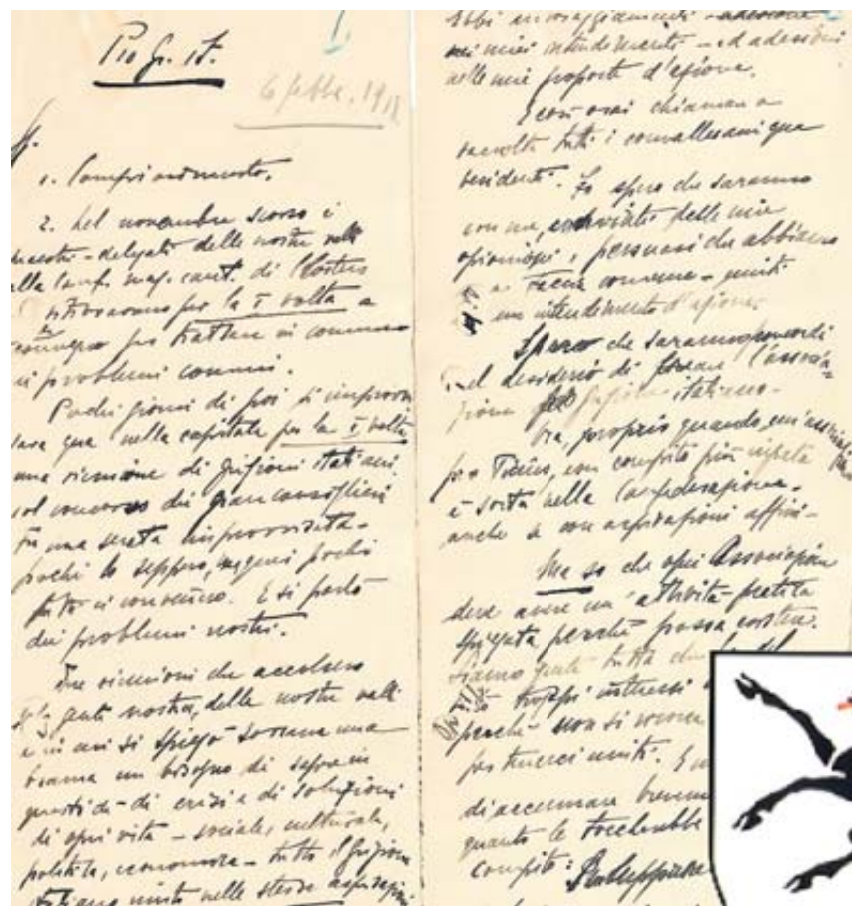 Pro Gr. it.
6 febbr. 1918
1. Compiacimento.
2. Nel novembre scorso i
maestri-delegati delle nostre valli
alla Conf. mag. cant. di Klosters
si trovarono per la I volta a
convegno per trattare in comune
di problemi comuni.
Pochi giorni di poi si improvvi
sava qua nella capitale per la I volta
una riunione di grigioni italiani
col concorso dei granconsiglieri
Fu una serata improvvisata -
pochi lo seppero, neppure pochi
tutti ci convennero. E si parlò
dei problemi nostri.
Due riunioni che accolsero
gente nostra, delle nostre valli
e in cui si spiegò sovrana una
brama un bisogno di sapere in
questi dì - di crisi e di soluzioni
di ogni vita - sociale, culturale,
politica, economica - tutto il grigione
italiano unito nelle stesse aspirazioni
Ebbi incoraggiamenti - adesione
nei miei intendimenti - ed adesioni
alle mie proposte d'azione.
E così osai chiamare a
raccolta tutti i convallerani qua
residenti. Io spero che saranno
con me, delle mie
opinioni, persuasi che abbiamo
a fare comune - uniti
un intendimento d'azione.
Spero che saranno concordi
nel desiderio di creare l'associa-
zione grigione italiano -
Ora, proprio quando, un'associaz.
pro Ticino, con compito più
è sorta nella Confederazione -
anche se con aspirazioni affini -
Ma so che ogni Associazione
deve avere un'attività pratica
spiegata perché possa esistere.
Siamo gente tutta che
troppi interessi
perché non si
per tenerci uniti. E
di accennare brevem
quanto le toccherebbe
compito: